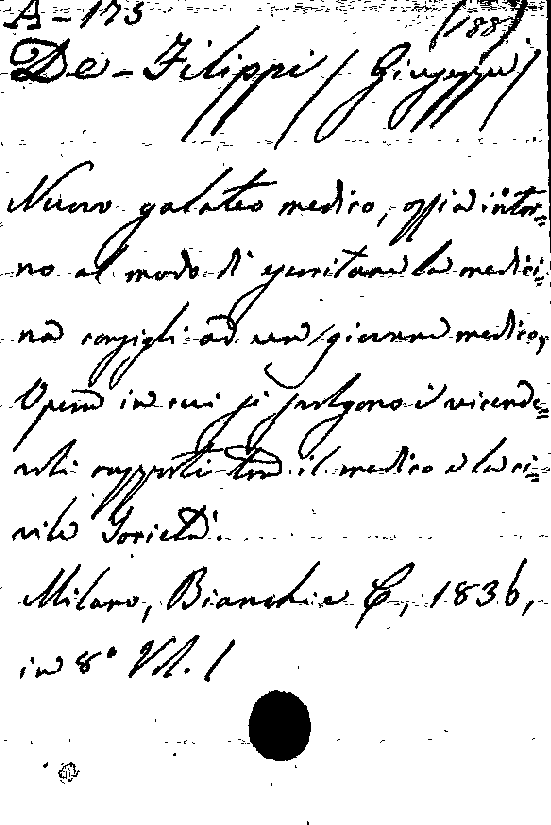 A-173 (188)
De-Filippi (Giuseppe)
Nuovo galateo medico, ossia intor=
no al modo di esercitare la medici=
na consigli ad un giovane medico,
Opera in cui si svolgono i vicende=
voli rapporti tra il medico e la ci=
vile Società.
Milano, Bianchi e C, 1836,
in 8° Vol. 1